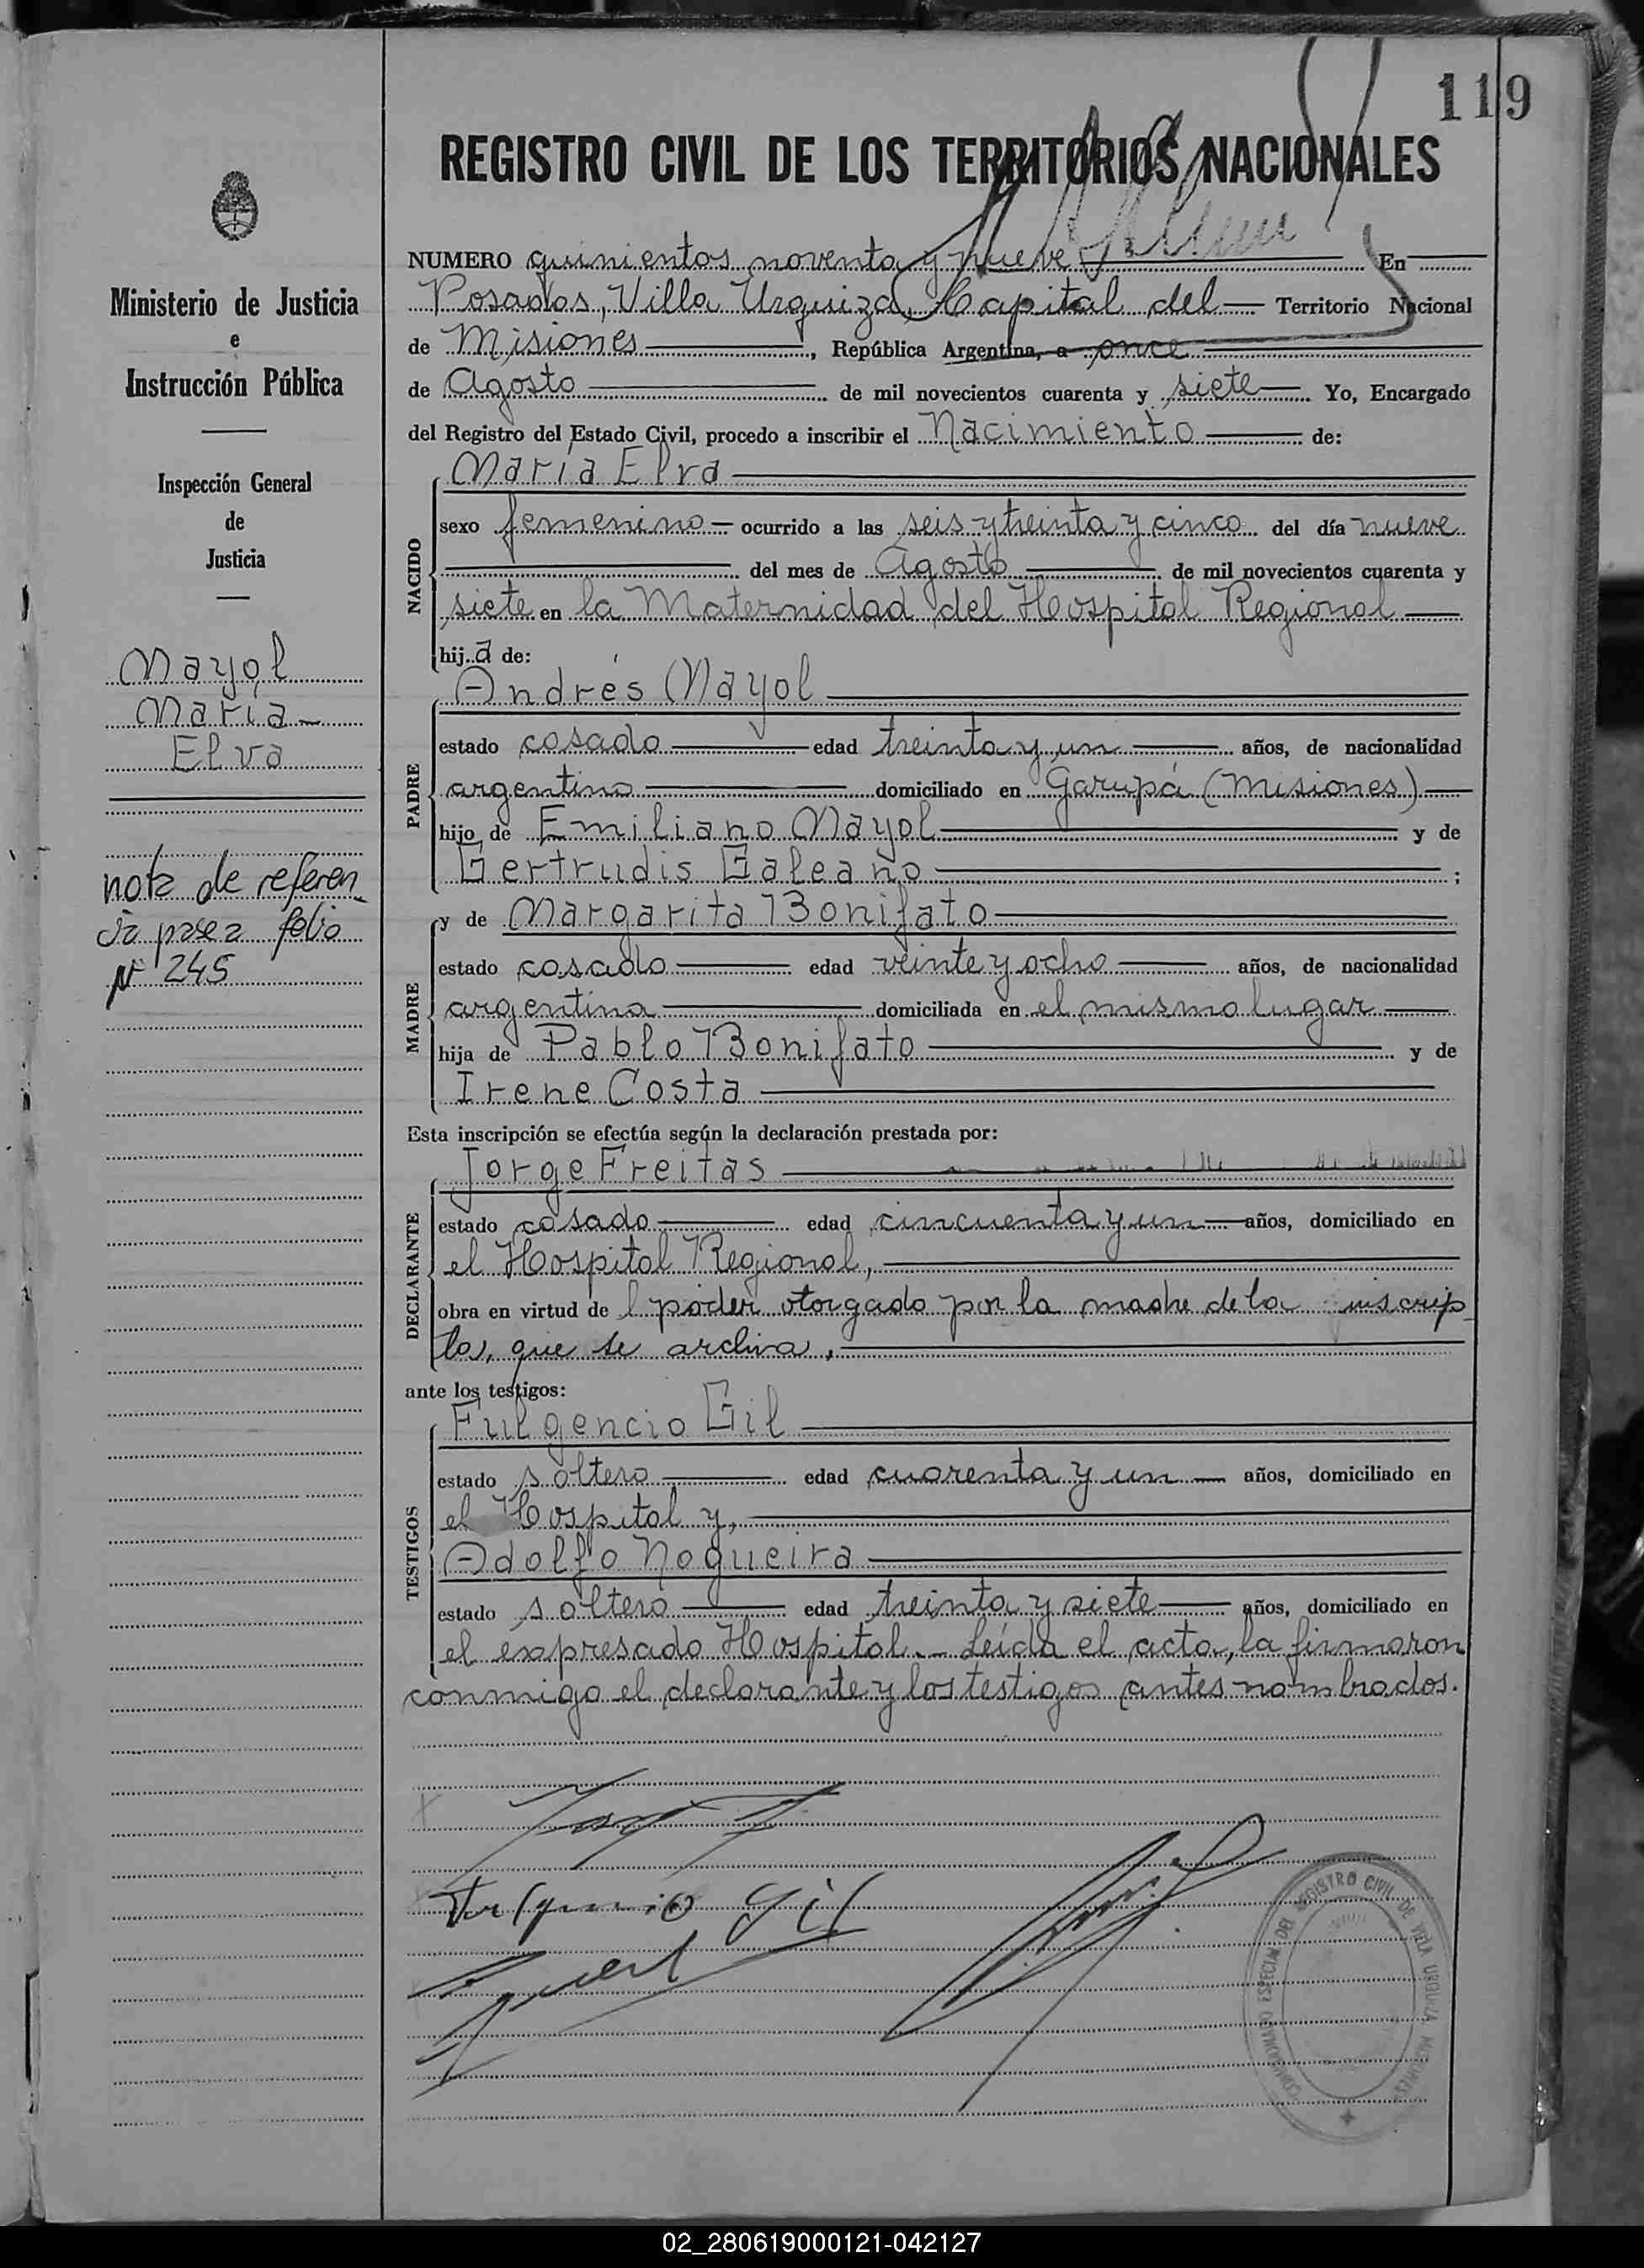 119
REGISTRO CIVIL DE LOS TERRITORIOS NACIONALES
NUMERO quinientos noventa y nueve En
Posadas, Villa Urquiza, Capital del Territorio Nacional
de Misiones, República Argentina, a once
de Agosto de mil novecientos cuarenta y siete Yo, Encargado
del Registro del Estado Civil, procedo a inscribir el Nacimiento de:
NACIDO
María Elva
sexo femenino ocurrido a las seis y treinta y cinco del día nueve
del mes de Agosto de mil novecientos cuarenta y
siete en la Maternidad del Hospital Regional
hija de:
PADRE
Andrés Mayol
estado casado edad treinta y un años, de nacionalidad
argentino domiciliado en Garupá (Misiones)
hijo de Emiliano Mayol y de
Gertrudis Galeano;
MADRE
y de Margarita Bonifato
estado casada edad veinte y ocho años, de nacionalidad
argentina domiciliada en el mismo lugar
hija de Pablo Bonifato y de
Irene Costa
Esta inscripción se efectúa según la declaración prestada por:
DECLARANTE
Jorge Freitas
estado casado edad cincuenta y un años, domiciliado en
el Hospital Regional,
obra en virtud del poder otorgado por la madre de la inscrip
ta, que se archiva.
ante los testigos:
TESTIGOS
Fulgencio Gil
estado soltero edad cuarenta y un años, domiciliado en
el Hospital y,
Adolfo Nogueira
estado soltero edad treinta y siete años, domiciliado en
el expresado Hospital.- Leída el acta, la firmaron
conmigo el declarante y los testigos antes nombrados.
Fulgencio Gil
REGISTRO CIVIL DE VILLA URQUIZA MISIONES
Ministerio de Justicia
e
Instrucción Pública
Inspección General
de
Justicia
Mayol
María
Elva
nota de referen
cia pase a folio
Nº 245
02_280619000121-042127